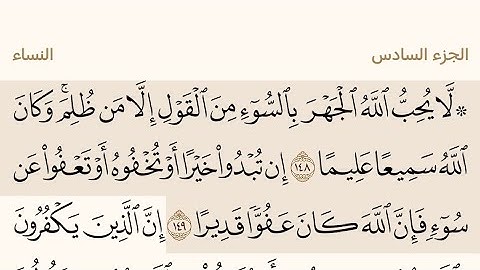 الجزء السادس
النساء
۞ لَّا يُحِبُّ ٱللَّهُ ٱلْجَهْرَ بِٱلسُّوٓءِ مِنَ ٱلْقَوْلِ إِلَّا مَن ظُلِمَ ۚ وَكَانَ
ٱللَّهُ سَمِيعًا عَلِيمًا ١٤٨ إِن تُبْدُوا۟ خَيْرًا أَوْ تُخْفُوهُ أَوْ تَعْفُوا۟ عَن
سُوٓءٍ فَإِنَّ ٱللَّهَ كَانَ عَفُوًّا قَدِيرًا ١٤٩ إِنَّ ٱلَّذِينَ يَكْفُرُونَ